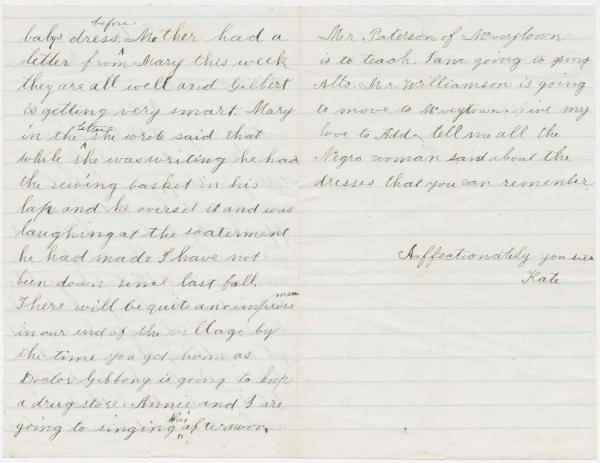 babys dress. Mother had a
before
letter from ^ Mary this week
they are all well and Gilbert
is getting very smart. Mary
in the ^ letter she wrote said that
while she was writing he had
the sewing basket in his
lap and he overset it and was
laughing at the scaterment
he had made I have not
been down since last fall.
There will be quite an improve
ment
in our end of the village by
the time you get home as
Doctor Gibbony is going to keep
a drug store. Annie and I are
going to singing this afternoon.
Mr Paterson of Mcveytown
is to teach. I am going to sing
Alto. Mr Williamson is going
to move to Mcveytown. Give my
love to Add tell me all the
Negro woman said about the
dresses that you can remember.
Aaffectionately you
Kate